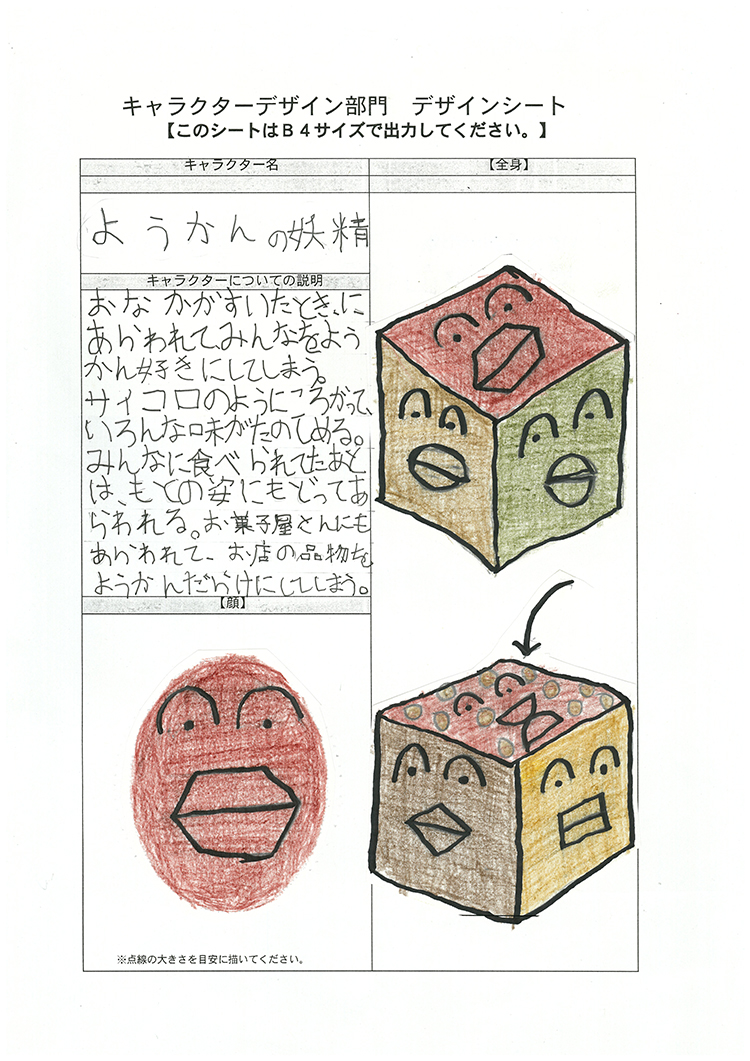 キャラクターデザイン部門　デザインシート
【このシートはB４サイズで出力してください。】
キャラクター名
【全身】
ようかんの妖精
キャラクターについての説明
おなかがすいたとき、に
あらわれて、みんなをよう
かん好きにしてしまう。
サイコロのようにころがって、
いろんな味がたのしめる。
みんなに食べられてたあと
は、もとの姿にもどってあ
らわれる。お菓子屋さんにも
あらわれて、お店の品物を
ようかんだらけにしてしまう。
【顔】
※点線の大きさを目安に描いてください。